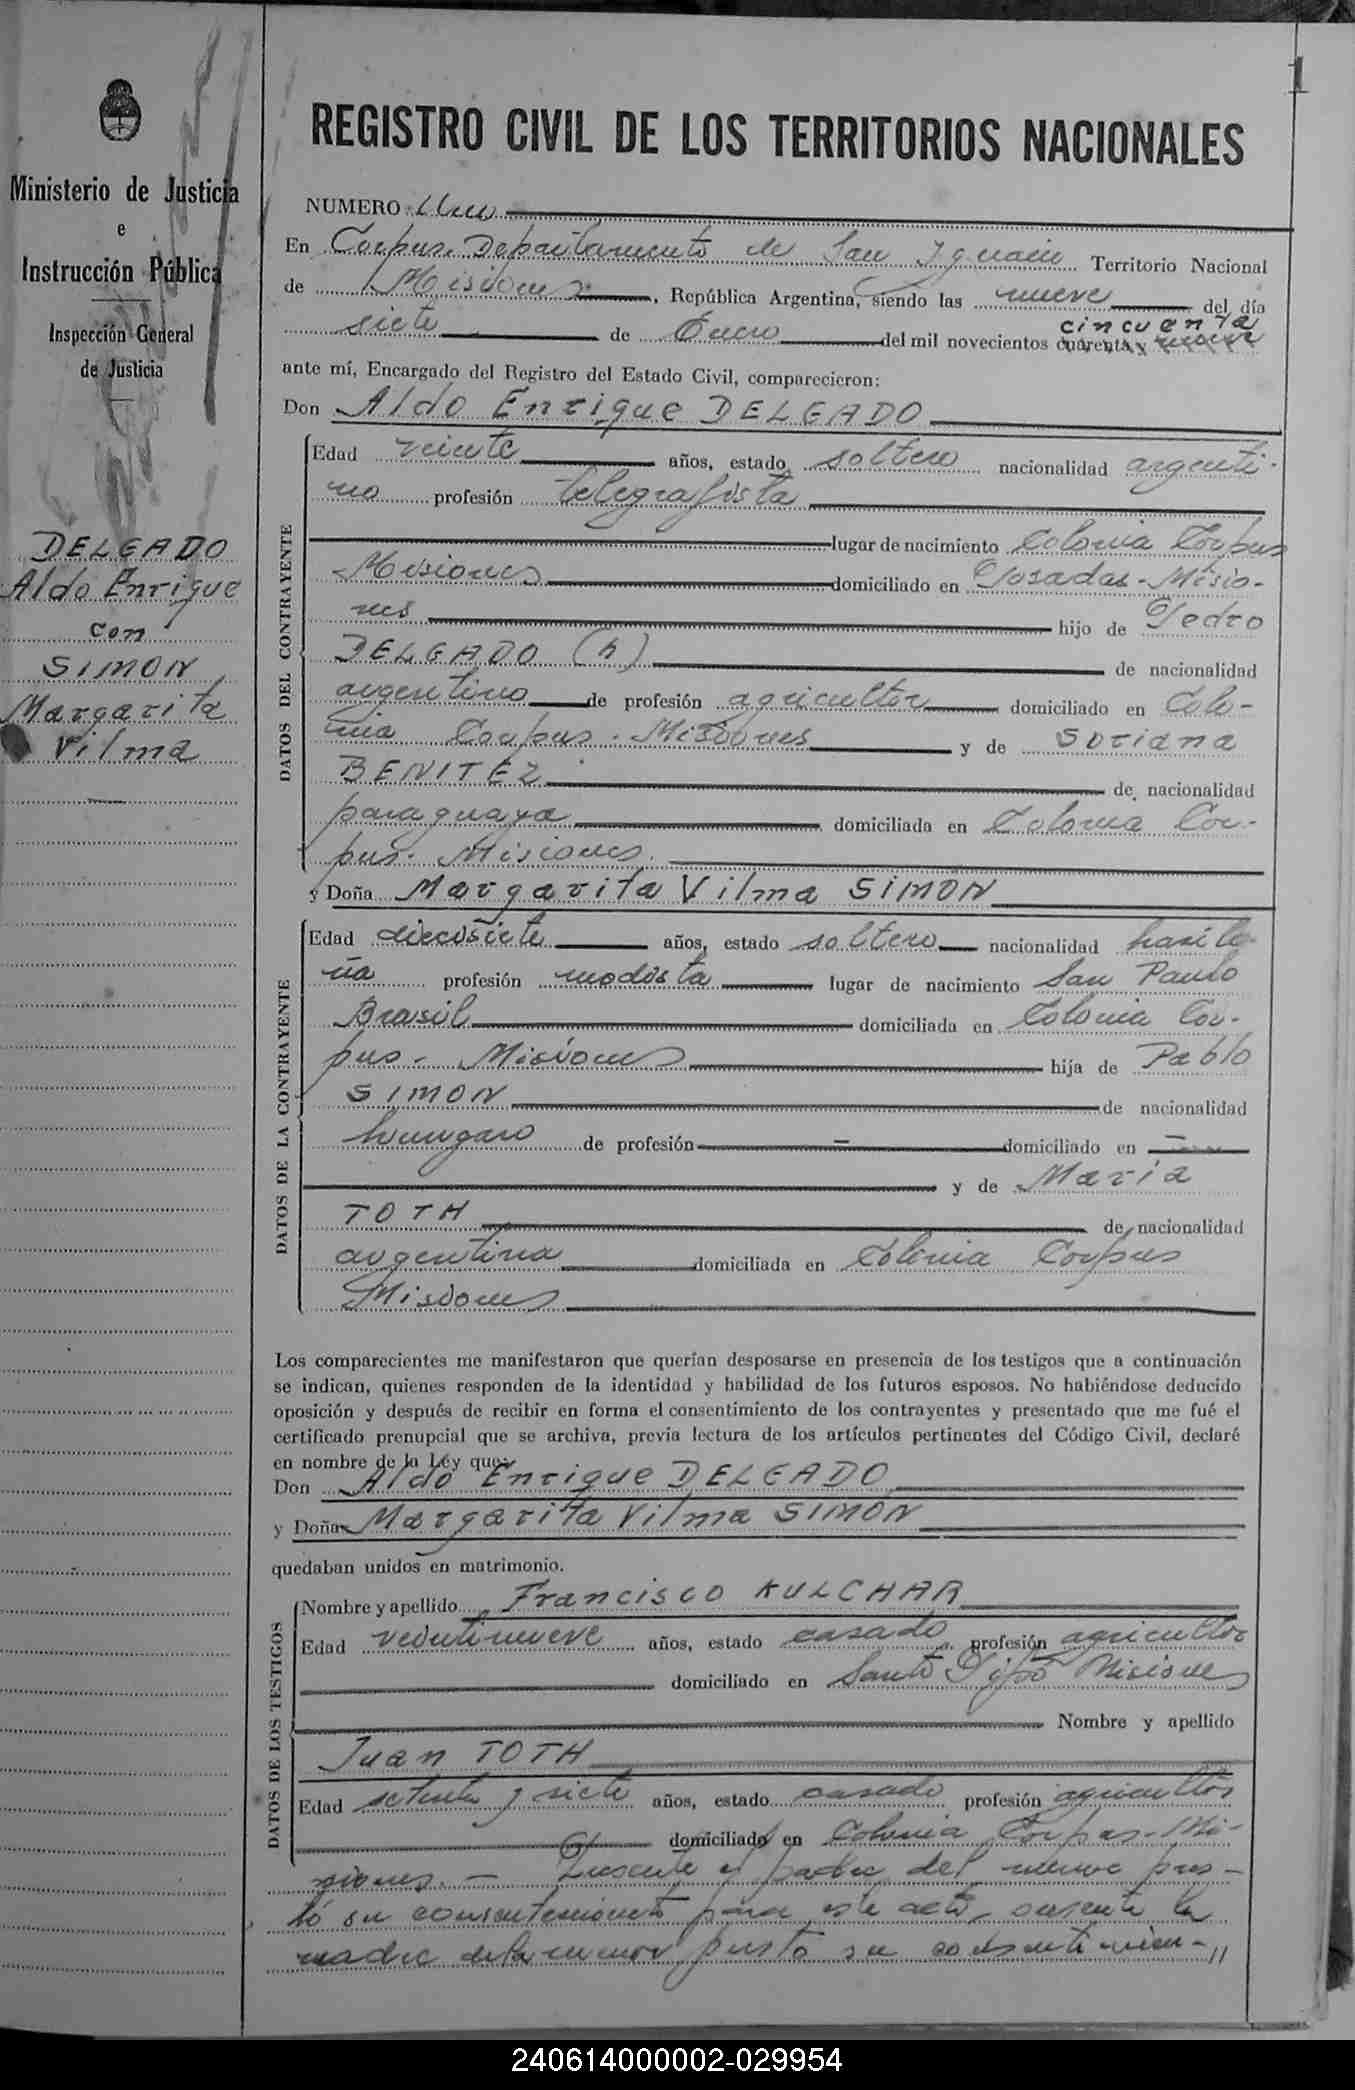 1
REGISTRO CIVIL DE LOS TERRITORIOS NACIONALES
Ministerio de Justicia
e
Instrucción Pública
Inspección General
de Justicia
DELGADO
Aldo Enrique
con
SIMON
Margarita
Vilma
NUMERO Uno
En Corpus. Departamento de San Ignacio Territorio Nacional
de Misiones, República Argentina, siendo las nueve del día
cincuenta
siete de Enero del mil novecientos cuarenta y nueve
ante mí, Encargado del Registro del Estado Civil, comparecieron:
Don Aldo Enrique DELGADO
DATOS DEL CONTRAYENTE
Edad veinte años, estado soltero nacionalidad argenti-
no profesión telegrafista
lugar de nacimiento Colonia Corpus
Misiones domiciliado en Posadas - Misio-
nes hijo de Pedro
DELGADO (h) de nacionalidad
argentino de profesión agricultor domiciliado en Colo-
nia Corpus. Misiones y de Soriana
BENITEZ de nacionalidad
paraguaya domiciliada en Colonia Cor-
pus. Misiones.
y Doña Margarita Vilma SIMON
DATOS DE LA CONTRAYENTE
Edad diecisiete años, estado soltero nacionalidad brasile-
ña profesión modista lugar de nacimiento San Paulo
Brasil domiciliada en Colonia Cor-
pus - Misiones hija de Pablo
SIMON de nacionalidad
hungaro de profesión — domiciliado en —
y de Maria
TOTH de nacionalidad
argentina domiciliada en Colonia Corpus
Misiones
Los comparecientes me manifestaron que querían desposarse en presencia de los testigos que a continuación
se indican, quienes responden de la identidad y habilidad de los futuros esposos. No habiéndose deducido
oposición y después de recibir en forma el consentimiento de los contrayentes y presentado que me fué el
certificado prenupcial que se archiva, previa lectura de los artículos pertinentes del Código Civil, declaré
en nombre de la Ley que:
Don Aldo Enrique DELGADO
y Doña Margarita Vilma SIMON
quedaban unidos en matrimonio.
DATOS DE LOS TESTIGOS
Nombre y apellido Francisco KULCHAR
Edad veintinueve años, estado casado profesión agricultor
domiciliado en Santo Pipó Misiones
Nombre y apellido
Juan TOTH
Edad setenta y siete años, estado casado profesión agricultor
domiciliado en Colonia Corpus - Mi-
siones. — Presente el padre del menor pres-
tó su consentimiento para este acto, presente la
madre de la menor presto su consentimien-//
240614000002-029954